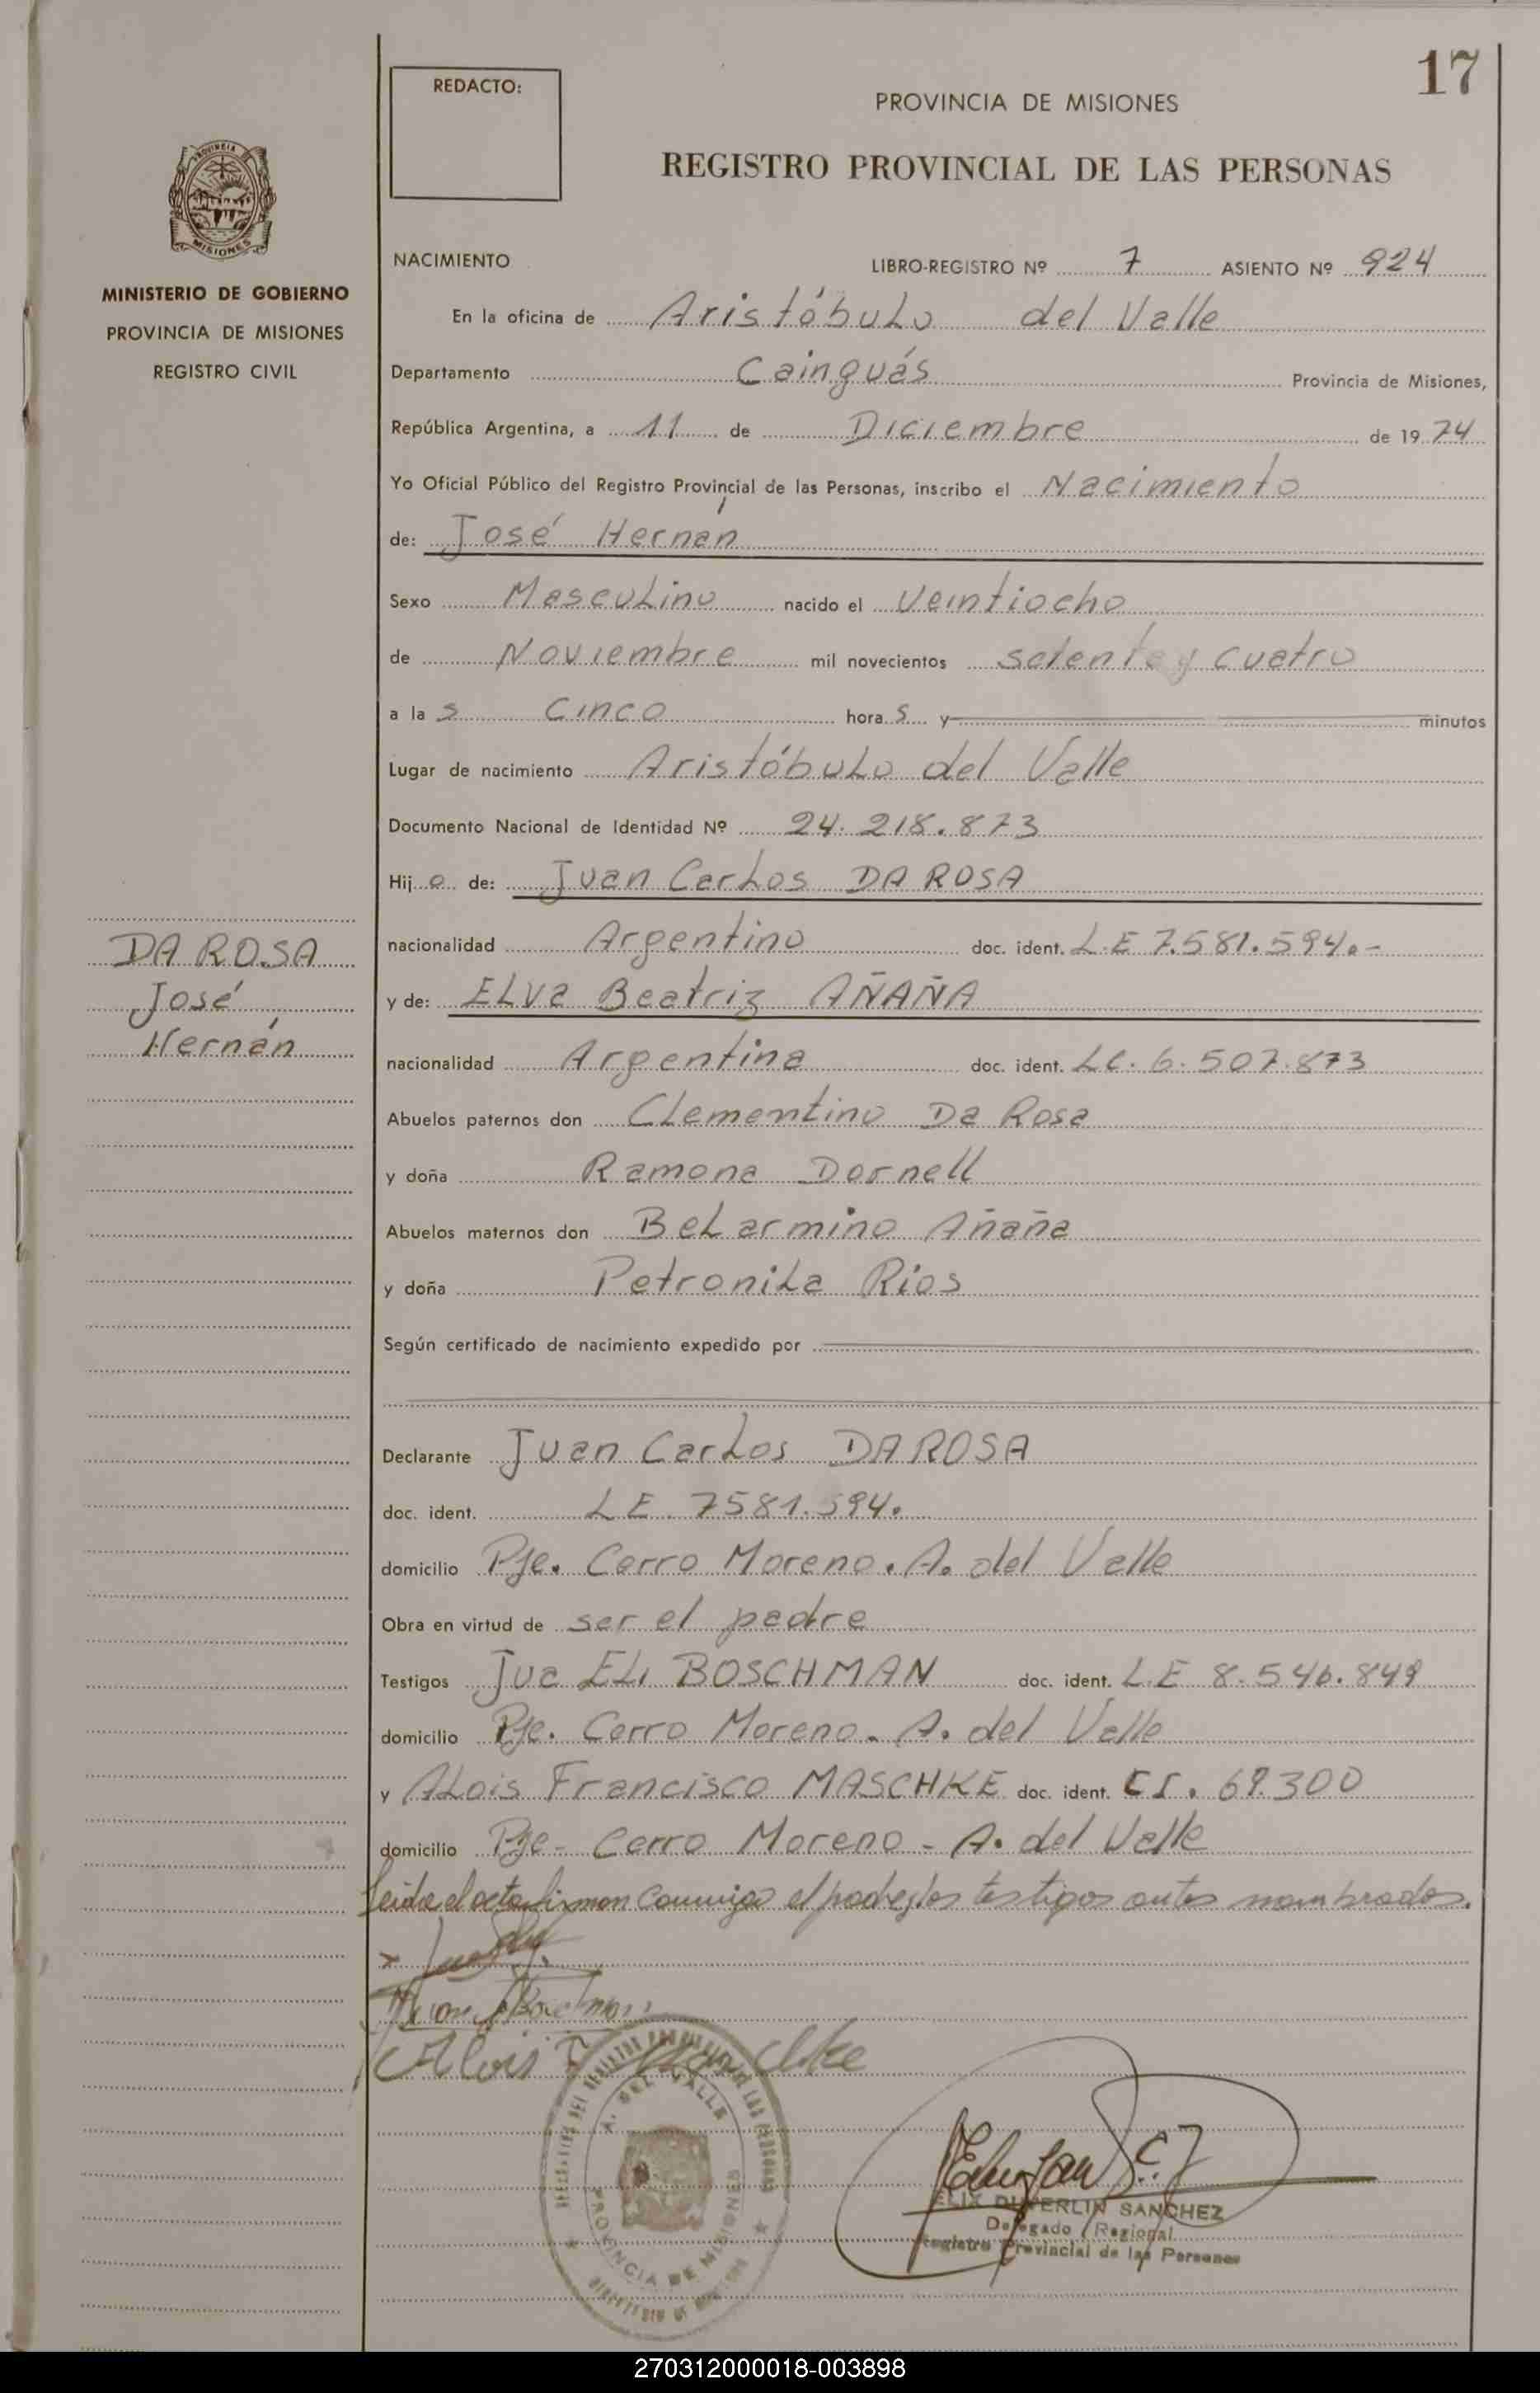 17
REDACTO:
PROVINCIA DE MISIONES
REGISTRO PROVINCIAL DE LAS PERSONAS
PROVINCIA
MISIONES
MINISTERIO DE GOBIERNO
PROVINCIA DE MISIONES
REGISTRO CIVIL
NACIMIENTO LIBRO-REGISTRO Nº 7 ASIENTO Nº 924
En la oficina de Aristóbulo del Valle
Departamento Cainguás Provincia de Misiones,
República Argentina, a 11 de Diciembre de 1974
Yo Oficial Público del Registro Provincial de las Personas, inscribo el Nacimiento
de: José Hernán
Sexo Masculino nacido el Veintiocho
de Noviembre mil novecientos setenta y cuatro
a las Cinco horas y minutos
Lugar de nacimiento Aristóbulo del Valle
Documento Nacional de Identidad Nº 24.218.873
Hijo de: Juan Carlos DA ROSA
nacionalidad Argentino doc. ident. L.E 7.581.594.-
y de: ELva Beatriz AÑAÑA
nacionalidad Argentina doc. ident. LC. 6.507.873
Abuelos paternos don Clementino Da Rosa
y doña Ramona Dornell
Abuelos maternos don Belarmino Añaña
y doña Petronila Rios
Según certificado de nacimiento expedido por
DA ROSA
José
Hernán
Declarante Juan Carlos DA ROSA
doc. ident. LE. 7581.594.
domicilio Pje. Cerro Moreno. A. del Valle
Obra en virtud de ser el padre
Testigos BOSCHMAN doc. ident. L.E 8.546.849
domicilio Pje. Cerro Moreno. A. del Valle
y ALois Francisco MASCHKE doc. ident. CI. 69.300
domicilio Pje - Cerro Moreno - A. del Valle
Leida el acta firman conmigo el padre y los testigos antes nombrados.
Alois F Maschke
A. DEL VALLE
PROVINCIA DE MISIONES
DUVERLIN SANCHEZ
Delegado Regional
Registro Provincial de las Personas
270312000018-003898